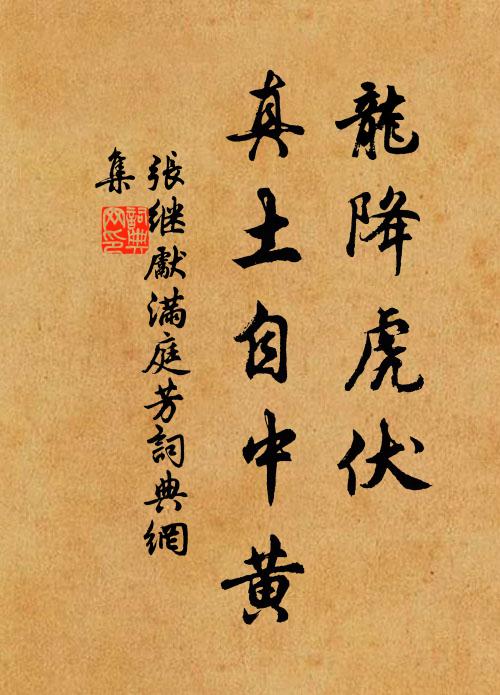 龍降虎伏
真土自中黄
張继獻滿庭芳詞典網
集
詞典
网印